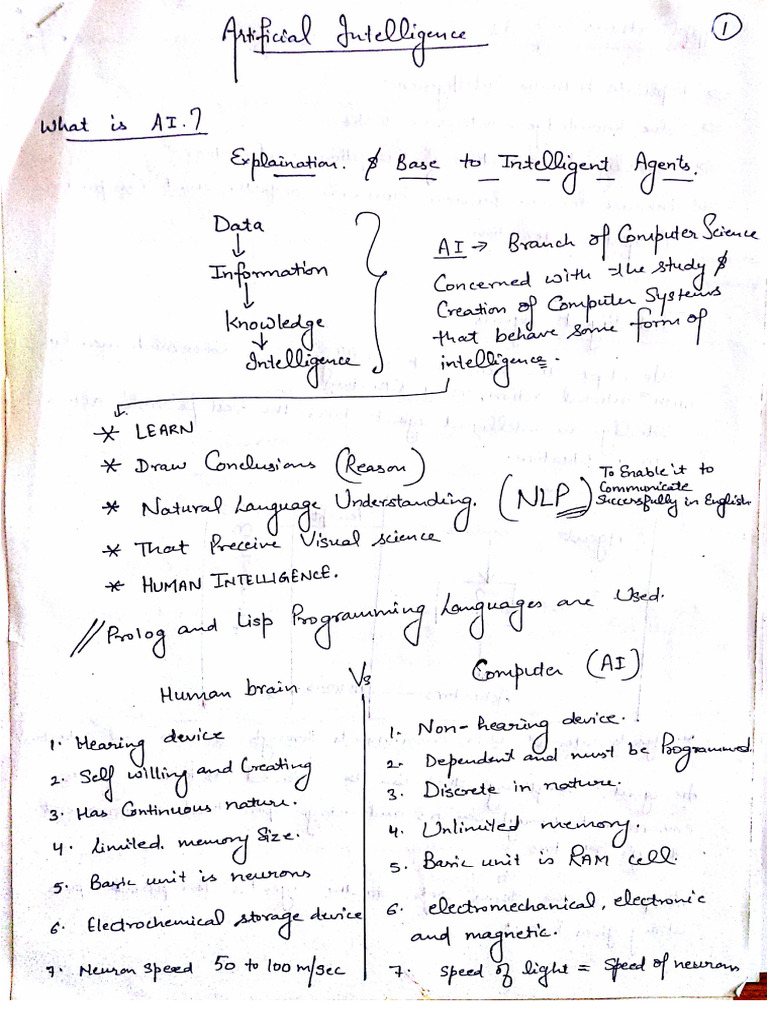 Artificial Intelligence
1
What is AI.?
Explaination. & Base to Intelligent Agents.
Data
↓
Information
↓
Knowledge
↓
Intelligence
AI → Branch of Computer Science
Concerned with the study &
Creation of Computer Systems
that behave some form of
intelligence.
* LEARN
* Draw Conclusions (Reason)
* Natural Language Understanding. (NLP)
To Enable it to
Communicate
Successfully in English
* That Preceive Visual science
* HUMAN INTELLIGENCE.
// Prolog and Lisp Programming Languages are Used.
Human brain Vs Computer (AI)
1. Hearing device
2. Self willing and Creating
3. Has Continuous nature.
4. Limited. memory Size.
5. Basic unit is neurons
6. Electrochemical storage device
7. Neuron speed 50 to 100 m/sec
1. Non-hearing device.
2. Dependent and must be Programmed
3. Discrete in nature.
4. Unlimited memory.
5. Basic unit is RAM cell.
6. electromechanical, electronic
and magnetic.
7. speed of light = speed of neurons